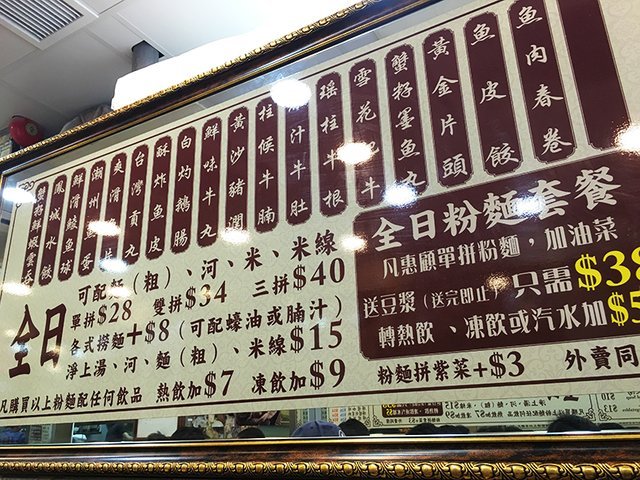 魚肉春卷
魚皮餃
黃金片頭
蟹籽墨魚丸
雪花肥牛
瑤柱牛根
汁牛肚
柱侯牛腩
黃沙豬潤
鮮味牛丸
白灼鵝腸
酥炸魚皮
台灣貢丸
爽滑魚片
潮州魚蛋
鮮滑鯪魚球
鳳城水餃
蟹籽鮮蝦雲吞
全日
可配麵（粗）、河、米、米線
單拼$28 雙拼$34 三拼$40
各式撈麵+$8（可配蠔油或腩汁）
淨上湯、河、麵（粗）、米線$15
凡購買以上粉麵配任何飲品 熱飲加$7 凍飲加$9
全日粉麵套餐
凡惠顧單拼粉麵，加油菜
送豆漿（送完即止）只需$38
轉熱飲、凍飲或汽水加$5
粉麵拼紫菜+$3 外賣同